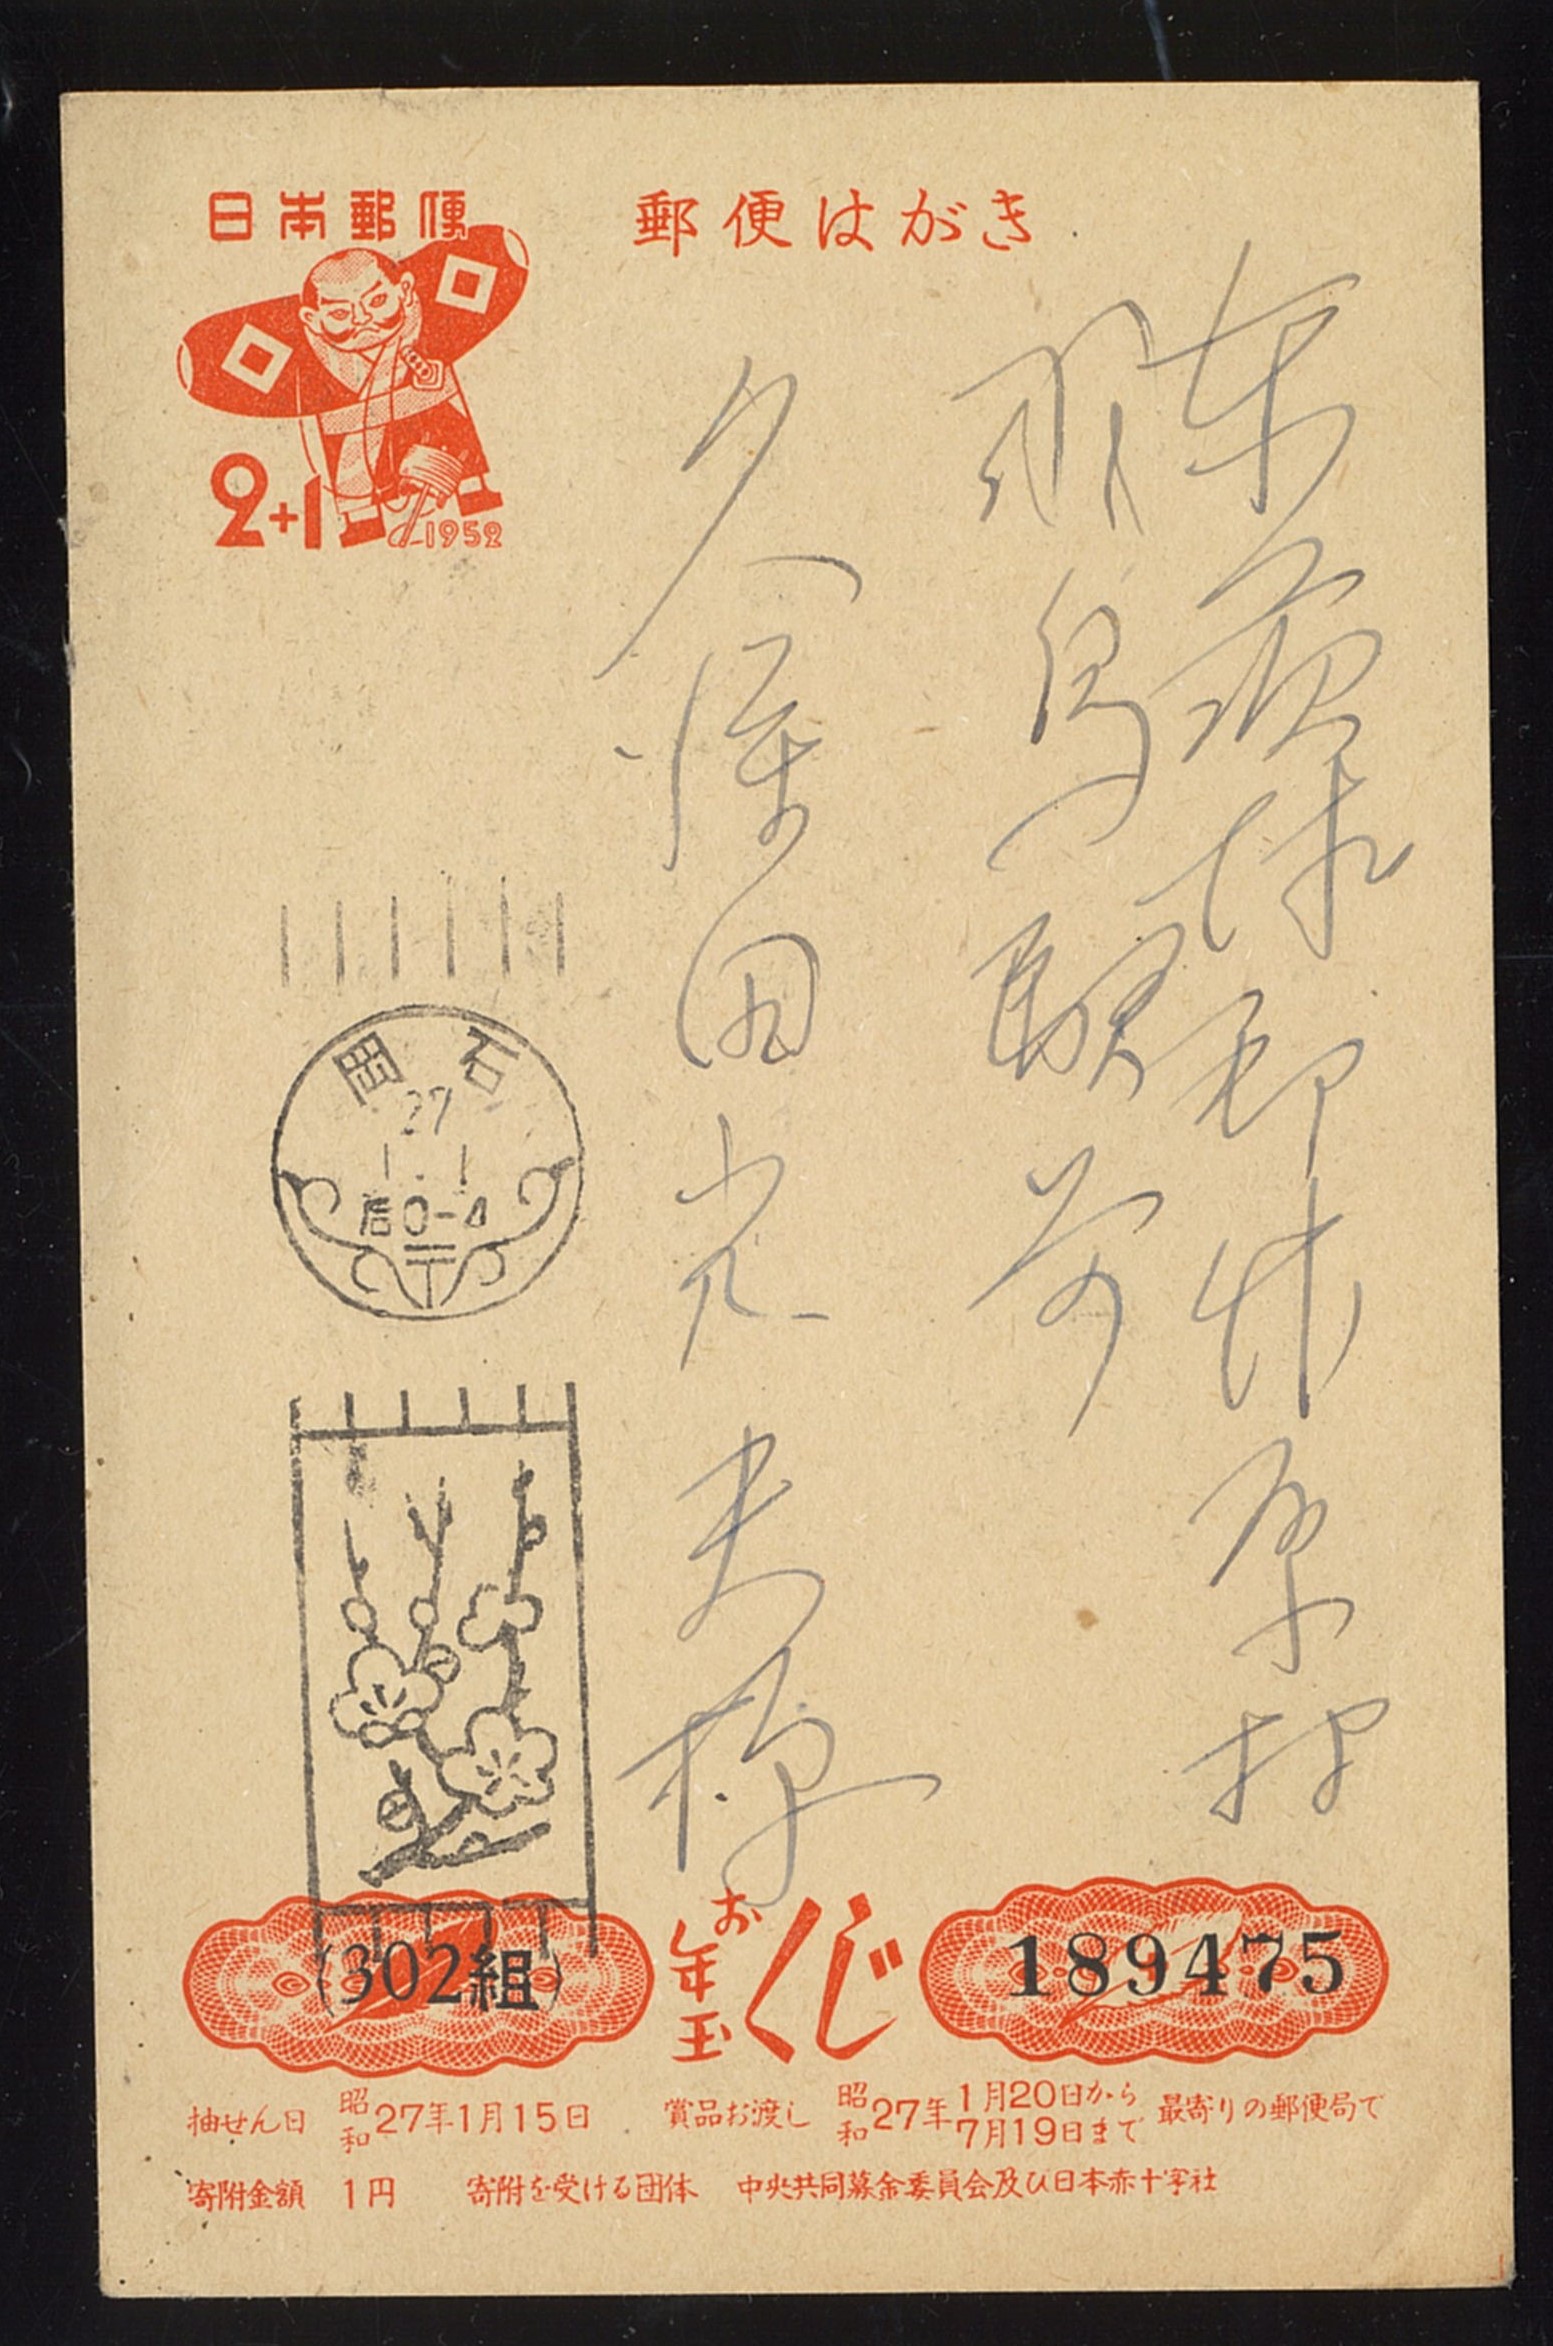 日本郵便
郵便はがき
2+1
1952
東茨城郡竹原村
羽鳥駅前
久保田光夫様
石岡
27
1.1
后0-4
(302組)
お年玉くじ
189475
抽せん日 昭和27年1月15日 賞品お渡し 昭和27年1月20日から7月19日まで 最寄りの郵便局で
寄附金額 1円 寄附を受ける団体 中央共同募金委員会及び日本赤十字社